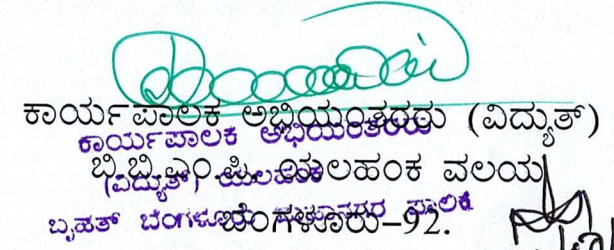 ಕಾರ್ಯಪಾಲಕ ಅಭಿಯಂತರರು (ವಿದ್ಯುತ್)
ಕಾರ್ಯಪಾಲಕ ಅಭಿಯಂತರರು
ಬಿ.ಬಿ.ಎಂ.ಪಿ. ಯಲಹಂಕ ವಲಯ
(ವಿದ್ಯುತ್) ಯಲಹಂಕ
ಬೆಂಗಳೂರು-92.
ಬೃಹತ್ ಬೆಂಗಳೂರು ಮಹಾನಗರ ಪಾಲಿಕೆ